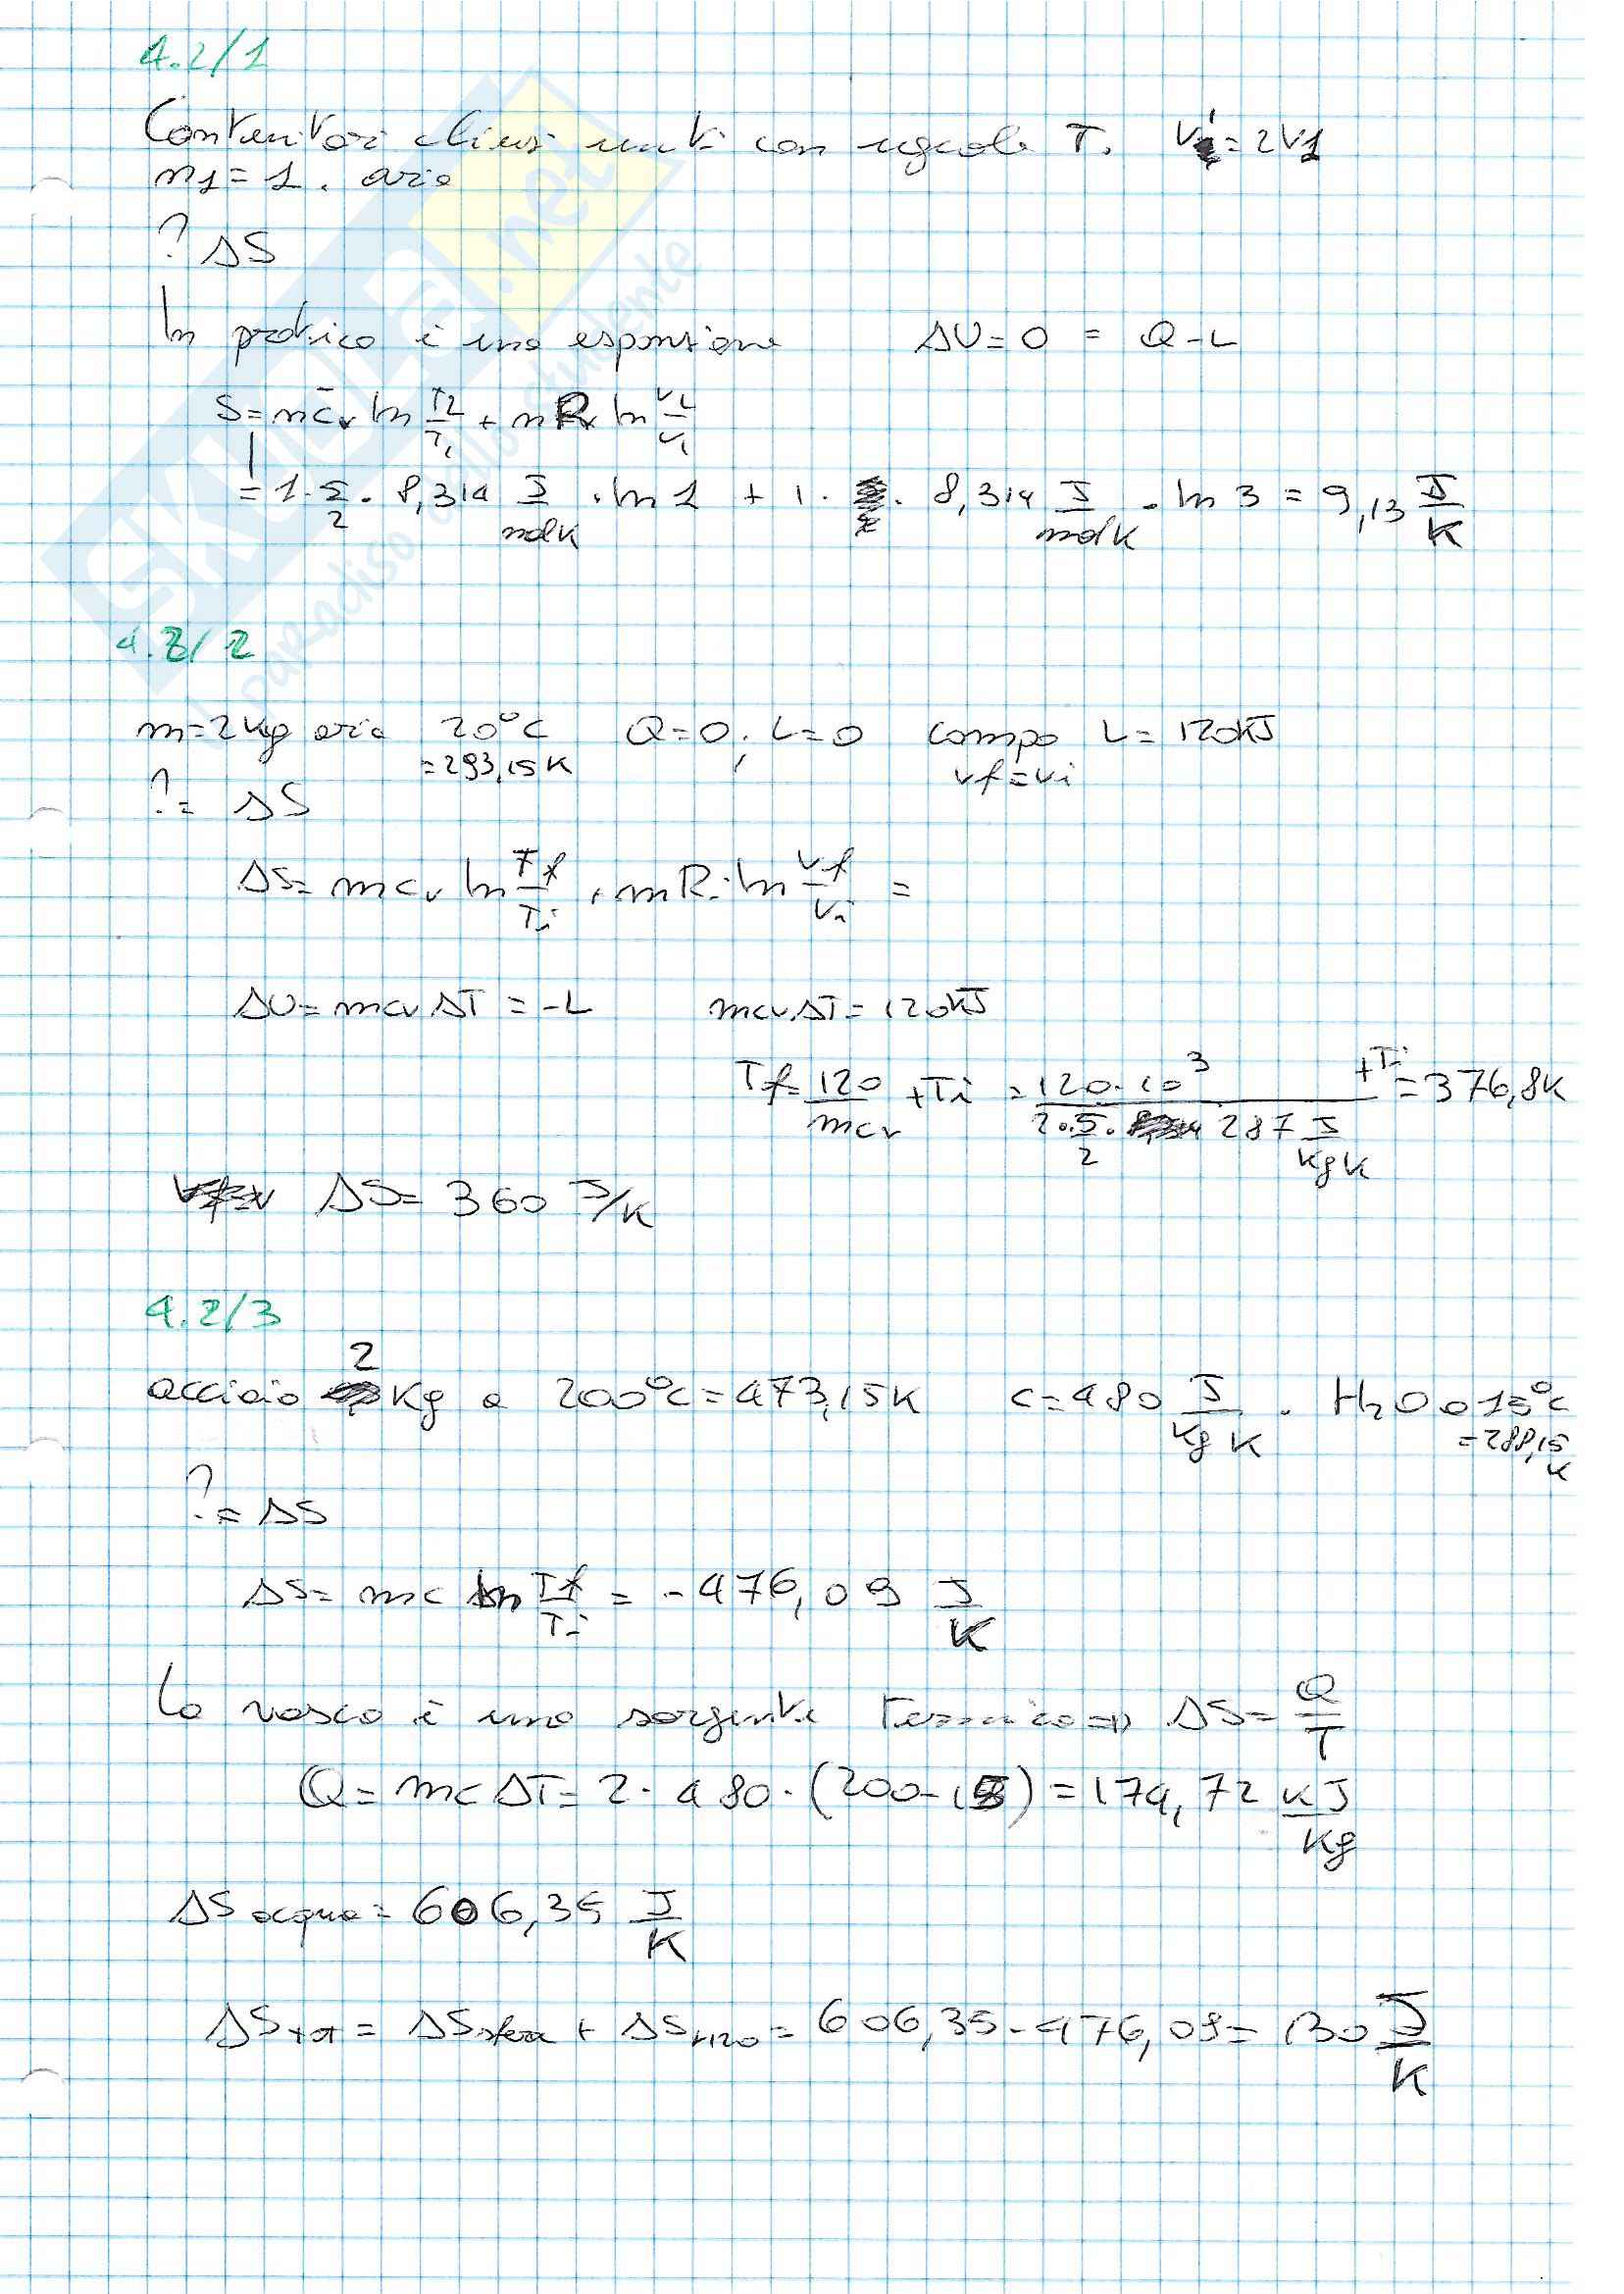 4.2/1
Contenitori chiusi uniti con uguale T. Vi = 2V1
n1 = 1. aria
? ΔS
In pratica è una espansione ΔU = 0 = Q - L
S = n c̄v ln T2/T1 + n R ln V2/V1
= 1 · 5/2 · 8,314 J/molK · ln 1 + 1 · 8,314 J/molK · ln 3 = 9,13 J/K
4.2/2
m = 2 kg aria 20°C Q = 0; L = 0 campo L = 120kJ
= 293,15K Vf = Vi
? = ΔS
ΔS = mcv ln Tf/Ti + mR · ln Vf/Vi =
ΔU = mcvΔT = -L mcvΔT = 120kJ
Tf = 120/mcv + Ti = 120·10³/(2·5/2·287 J/kgK) + Ti = 376,8K
ΔS = 360 J/K
4.2/3
acciaio 2 Kg a 200°C = 473,15K c = 480 J/kgK . H2O a 15°C
= 288,15K
? = ΔS
ΔS = mc ln Tf/Ti = -476,09 J/K
La vasca è una sorgente termica ⇒ ΔS = Q/T
Q = mcΔT = 2 · 480 · (200-18) = 174,72 kJ/kg
ΔS acqua = 606,35 J/K
ΔStot = ΔSsfera + ΔSH2O = 606,35 - 476,09 = 130 J/K
SKUOLA.net
il paradiso dello studente